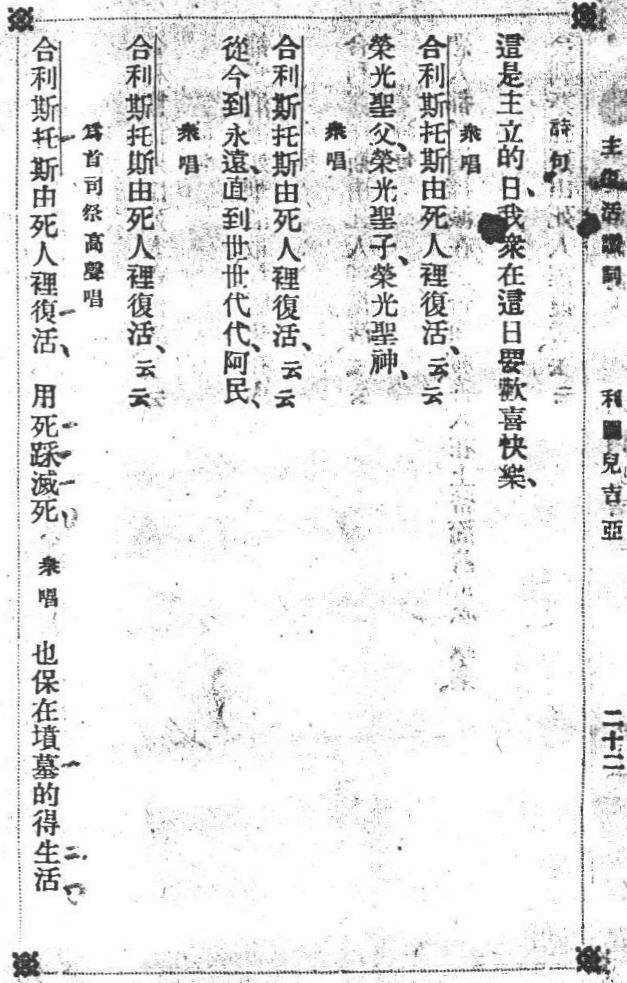 主復活讚詞 利圖兒吉亞 二十二
詩句
這是主立的日、我衆在這日要歡喜快樂、
衆唱
合利斯托斯由死人裡復活、云云
榮光聖父、榮光聖子、榮光聖神、
衆唱
合利斯托斯由死人裡復活、云云
從今到永遠、直到世世代代、阿民、
衆唱
合利斯托斯由死人裡復活、云云
爲首司祭高聲唱
合利斯托斯由死人裡復活、用死踩滅死、衆唱 也保在墳墓的得生活